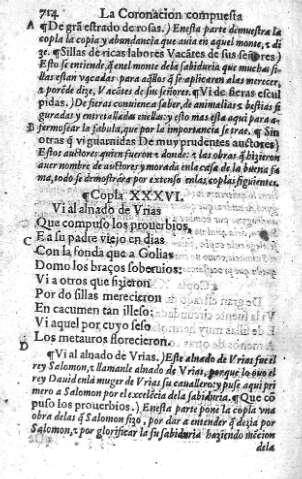 714 La Coronacion compuesta
A ¶De grã estrado de rosas.) Enesta parte demuestra la
copla la copia y abundancia que auia en aquel monte, ɀ di
ze. ¶Sillas de ricas labores Vacãtes de sus señores)
Esto se entiende, q̃ enel monte dela sabiduria que muchas si
llas estan vacadas para aq̃llos q̃ se aplicaren alas merecer,
a por ẽde dize, Vacãtes de sus señores. ¶Vi de fieras escul
pidas.) De fieras conuiene a saber, de animalias ɀ bestias fi
guradas y entretalladas enellas: y esto mas esta aqui para a-
B fermosear la fabula, que por la importancia se trae. ¶ Sin
otras q̃ vi guarnidas De muy prudentes auctores)
Estos auctores quien fueron ɀ donde: ɀ las obras q̃ hizierõ
auer nombre de auctores y morada enla casa de la buena fa
ma, todo se demostrara por extenso enlas coplas siguientes.
¶Copla XXXVI.
Vi al alnado de Vrias
Que compuso los prouerbios,
C E a su padre viejo en dias
Con la fonda que a Golias
Domo los braços soberuios:
Vi a otros que fizieron
Por do sillas merecieron
En cacumen tan illeso:
Vi aquel por cuyo seso
Los metauros florecieron.
D ¶Vi al alnado de Vrias.) Este alnado de Vrias fue el
rey Salomon, ɀ llamanle alnado de Vrias, porque lo ouo el
rey Dauid enla muger de Vrias su cauallero: y puse aqui pri
mero a Salomon por el excelẽcia dela sabiduria. ¶Que cõ
puso los prouerbios.) Enesta parte pone la copla vna
obra delas q̃ Salomon fizo, por dar a entender q̃ dezia por
Salomon, ɀ por glorificar la su sabiduria haziendo mẽcion
dela